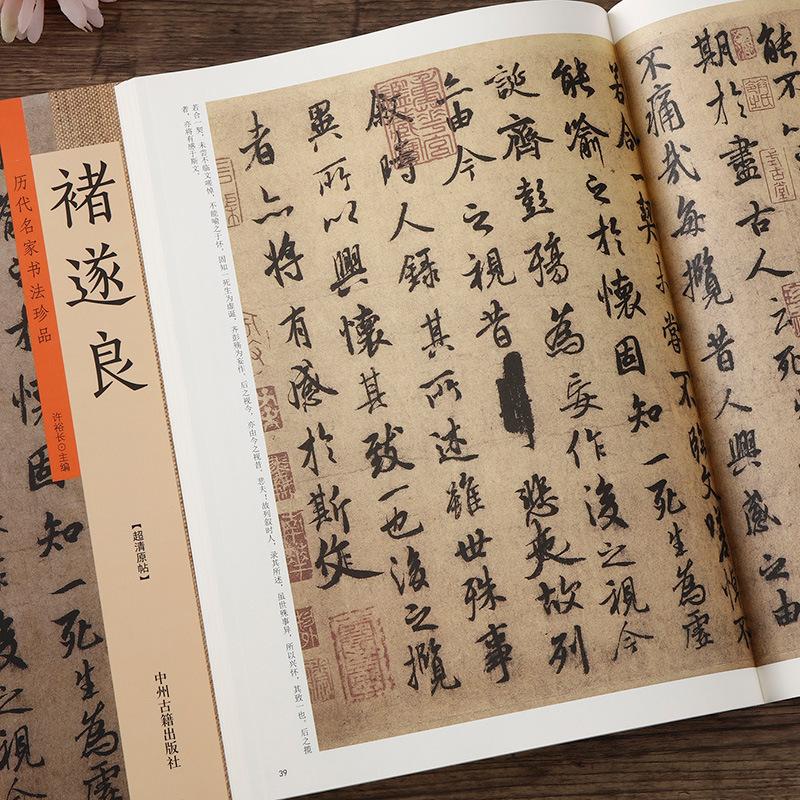 能不
期於盡古人云死
不痛哉每攬昔人興感之由
若合一契未嘗不臨文嗟悼不
能喻之於懷固知一死生為虛
誕齊彭殤為妄作後之視今
亦由今之視昔悲夫故列
叙時人錄其所述雖世殊事
異所以興懷其致一也後之攬
者亦將有感於斯文
若合一契，未尝不临文嗟悼，不能喻之于怀。固知一死生为虚诞，齐彭殇为妄作。后之视今，亦由今之视昔，悲夫！故列叙时人，录其所述，虽世殊事异，所以兴怀，其致一也。后之揽
者，亦将有感于斯文。
39
褚遂良
历代名家书法珍品
许裕长⊙主编
【超清原帖】
中州古籍出版社
懷固知一死生為
後之視今